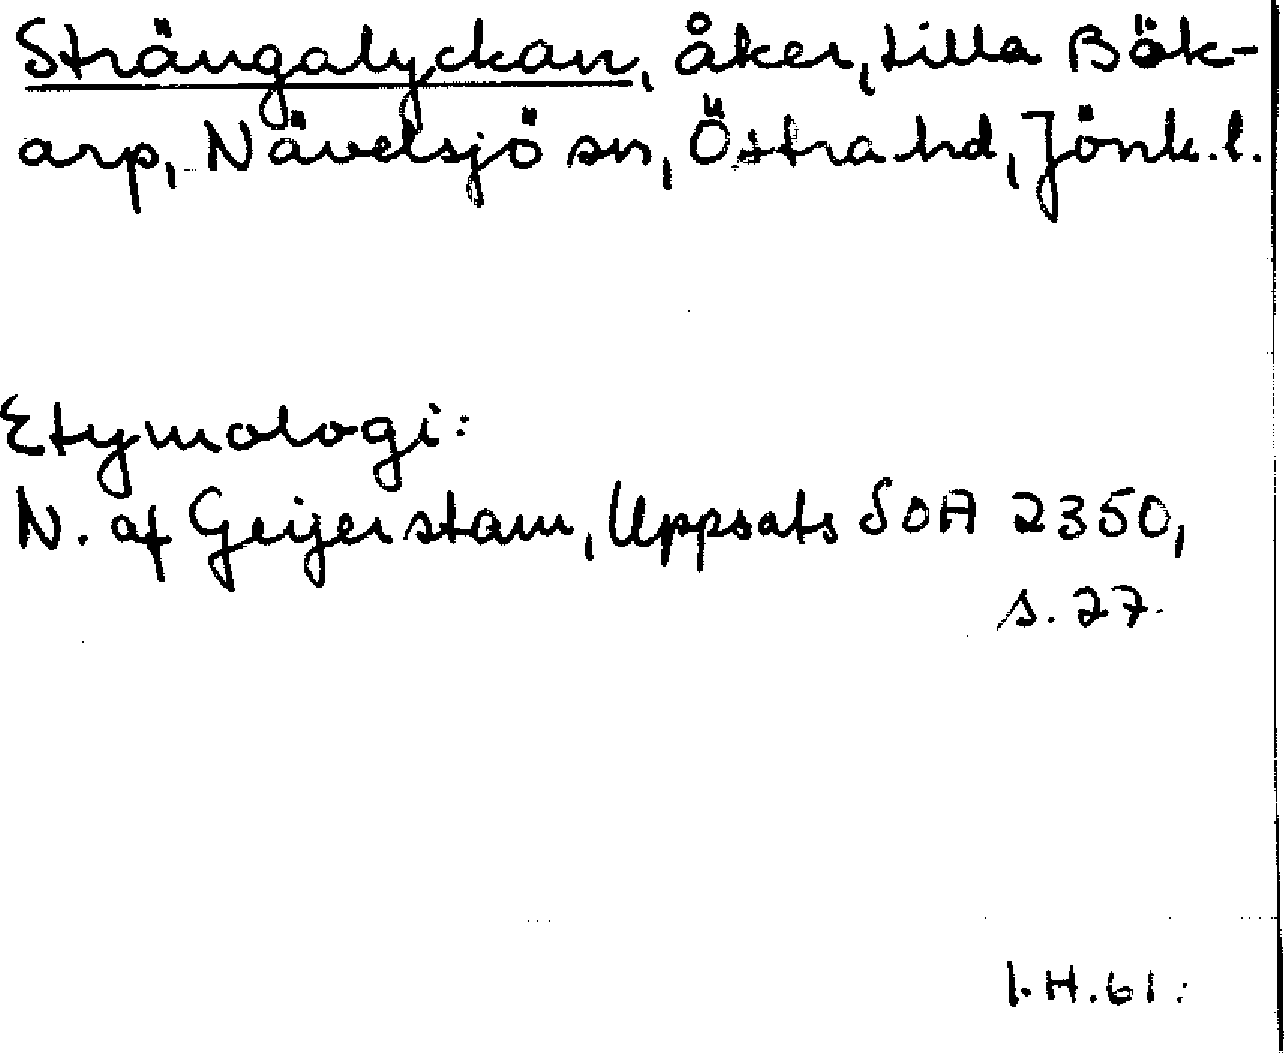 Strängalyckan, åker, Lilla Bök-
arp, Nävelsjö sn, Östra hd, Jönk. l.
Etymologi:
N. af Geijerstam, Uppsats SOA 2350,
s. 27.
I.H. 61.